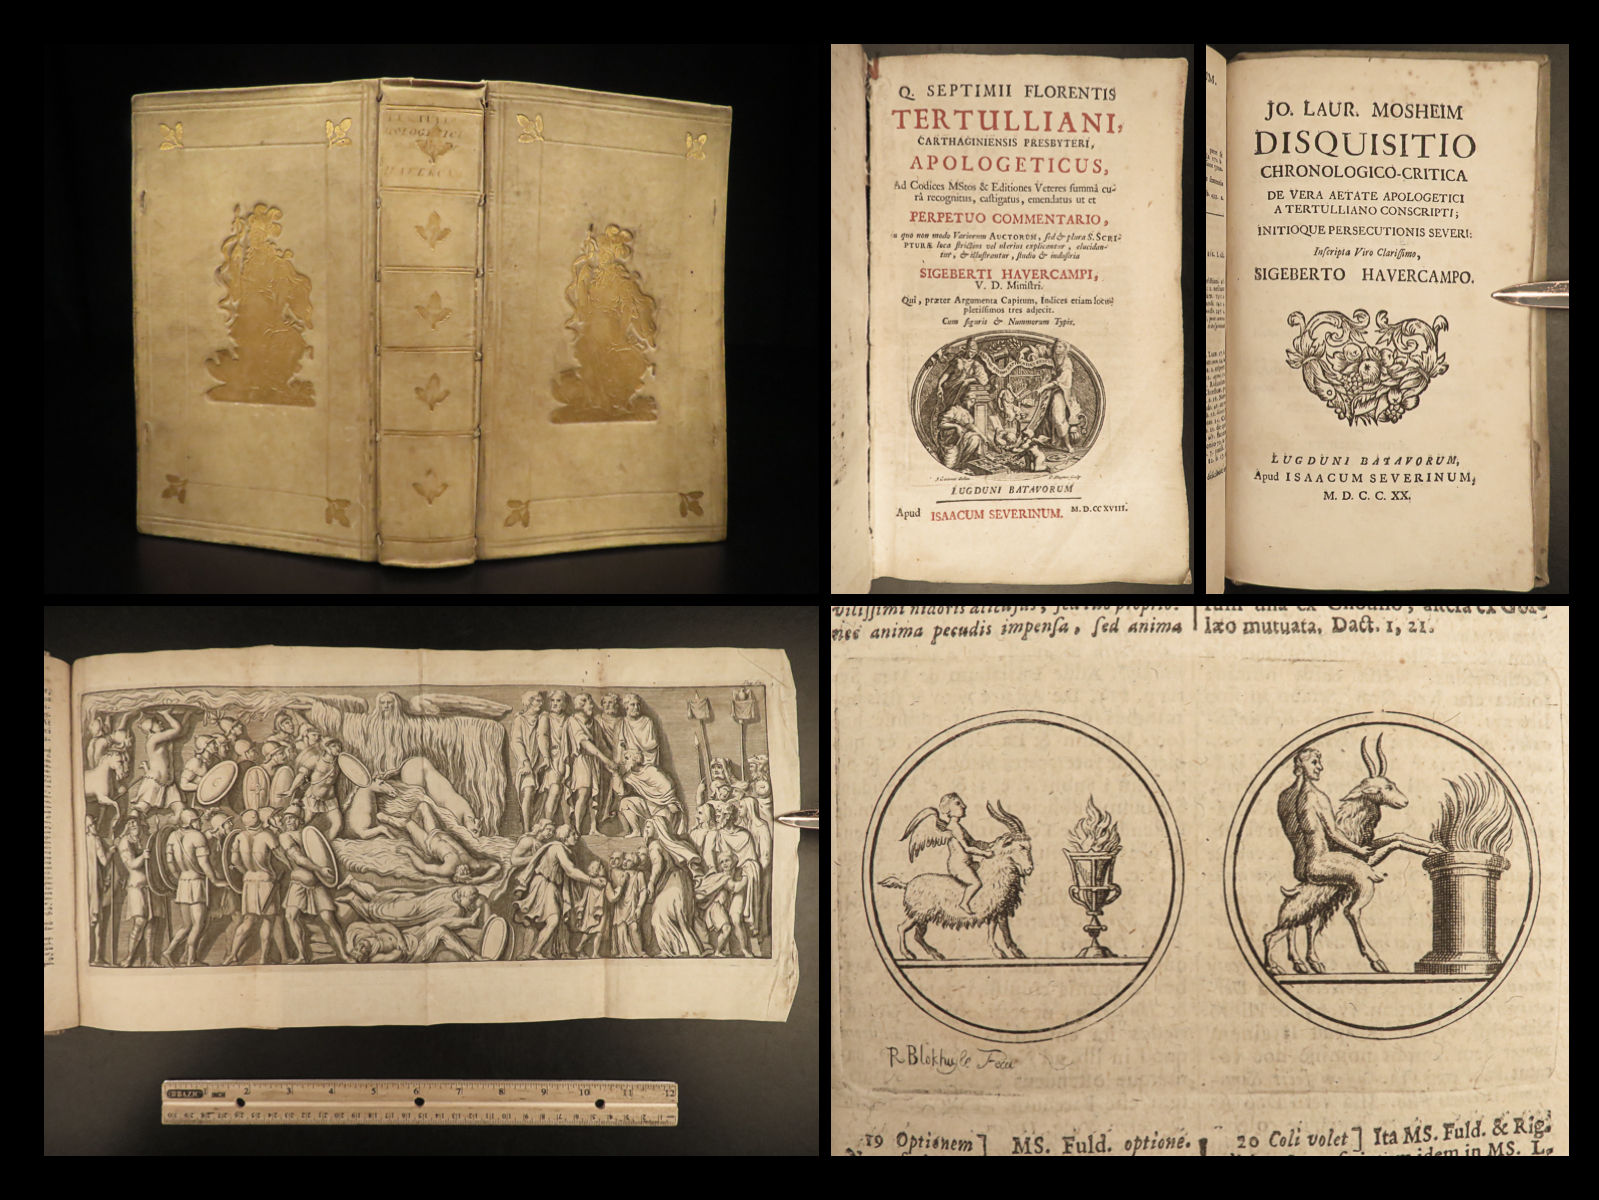 APOLOGETICI
HAVERCAMP
Q. SEPTIMII FLORENTIS
TERTULLIANI,
CARTHAGINIENSIS PRESBYTERI,
APOLOGETICUS,
Ad Codices MStos & Editiones Veteres summâ cu-
râ recognitus, castigatus, emendatus ut et
PERPETUO COMMENTARIO,
quo non modo Variorum AUCTORUM, sed & plura S. SCRI-
PTURÆ loca strictim vel uberius explicantur, elucidan-
tur, & illustrantur, studio & industria
SIGEBERTI HAVERCAMPI,
V. D. Ministri.
Qui, præter Argumenta Capitum, Indices etiam locu-
pletissimos tres adjecit.
Cum figuris & Nummorum Typis.
LUGDUNI BATAVORUM
Apud ISAACUM SEVERINUM. M. D. CC XVIII.
JO. LAUR. MOSHEIM
DISQUISITIO
CHRONOLOGICO-CRITICA
DE VERA AETATE APOLOGETICI
A TERTULLIANO CONSCRIPTI;
INITIOQUE PERSECUTIONIS SEVERI;
Inscripta Viro Clarissimo,
SIGEBERTO HAVERCAMPO.
LUGDUNI BATAVORUM,
Apud ISAACUM SEVERINUM,
M. D. C. C. XX.
INCH 2 3 4 5 6 7 8 9 10 11 12
vilissimi nidoris alicujus, sed
nec anima pecudis impensa, sed anima
læo mutuata. Dact. 1, 21.
R Blokhuyse Fecit
19 Optionem] MS. Fuld. optione.
20 Coli volet] Ita MS. Fuld. & Rig.
idem in MS. L.